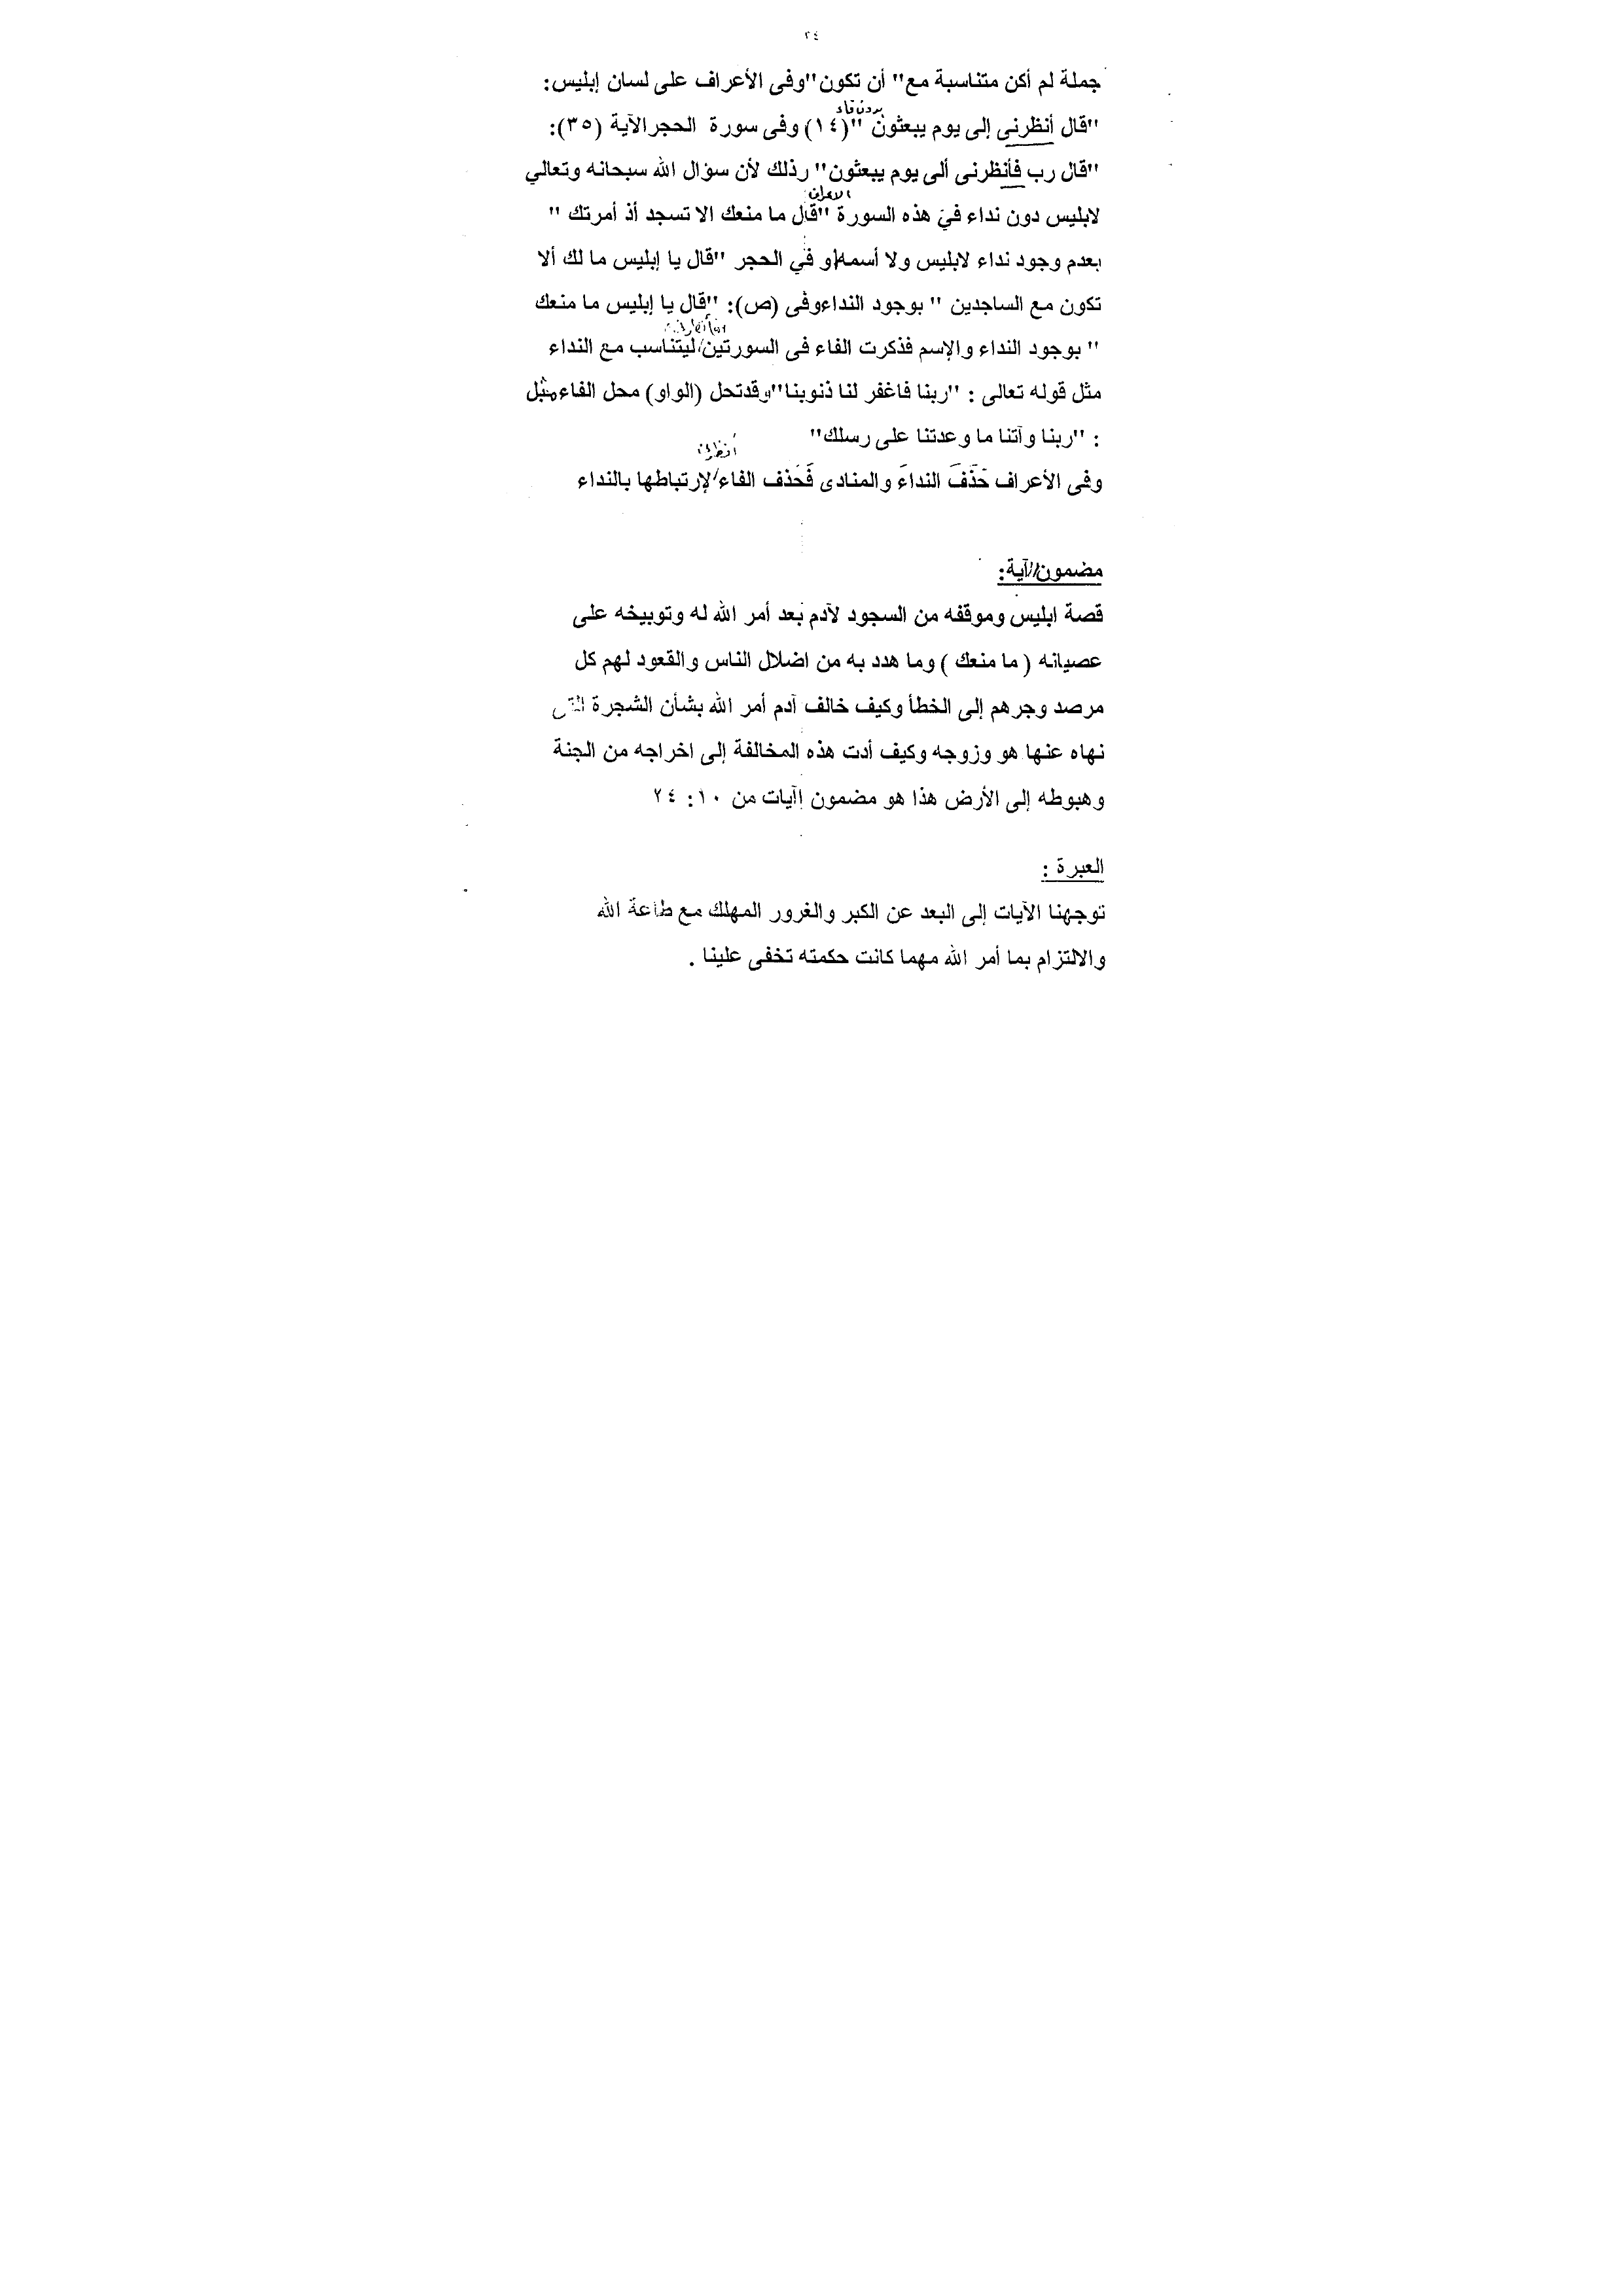 ٢٤
جملة لم أكن متناسبة مع" أن تكون"وفى الأعراف على لسان إبليس:
بدون فاء
"قال أنظرنى إلى يوم يبعثون "(١٤) وفى سورة الحجرالآية (٣٥):
"قال رب فأنظرنى ألى يوم يبعثون" رذلك لأن سؤال الله سبحانه وتعالي
الاعراف
لابليس دون نداء في هذه السورة "قال ما منعك الا تسجد أذ أمرتك "
بعدم وجود نداء لابليس ولا أسمه/و في الحجر "قال يا إبليس ما لك ألا
تكون مع الساجدين " بوجود النداءوفى (ص): "قال يا إبليس ما منعك
" بوجود النداء والإسم فذكرت الفاء فى السورتين/ليتناسب مع النداء
مثل قوله تعالى : "ربنا فاغفر لنا ذنوبنا"وقدتحل (الواو) محل الفاء مثل
: "ربنا وآتنا ما وعدتنا على رسلك"
أنظرنى
وفى الأعراف حَذَفَ النداءَ والمنادى فَحَذف الفاء/لإرتباطها بالنداء
مضمون الآية:
قصة ابليس وموقفه من السجود لآدم بعد أمر الله له وتوبيخه على
عصيانه ( ما منعك ) وما هدد به من اضلال الناس والقعود لهم كل
مرصد وجرهم إلى الخطأ وكيف خالف آدم أمر الله بشأن الشجرة التى
نهاه عنها هو وزوجه وكيف أدت هذه المخالفة إلى اخراجه من الجنة
وهبوطه إلى الأرض هذا هو مضمون اآيات من ١٠: ٢٤
العبرة :
توجهنا الآيات إلى البعد عن الكبر والغرور المهلك مع طاعة الله
والالتزام بما أمر الله مهما كانت حكمته تخفى علينا .